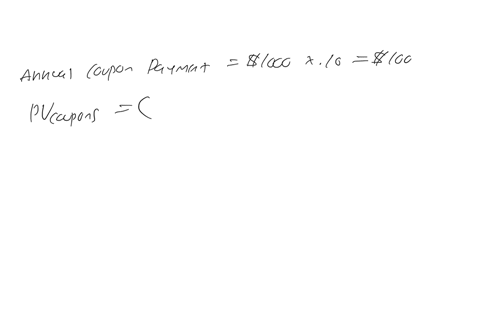 Annual Coupon Payment = $1000 x .10 = $100
PVcoupons = (